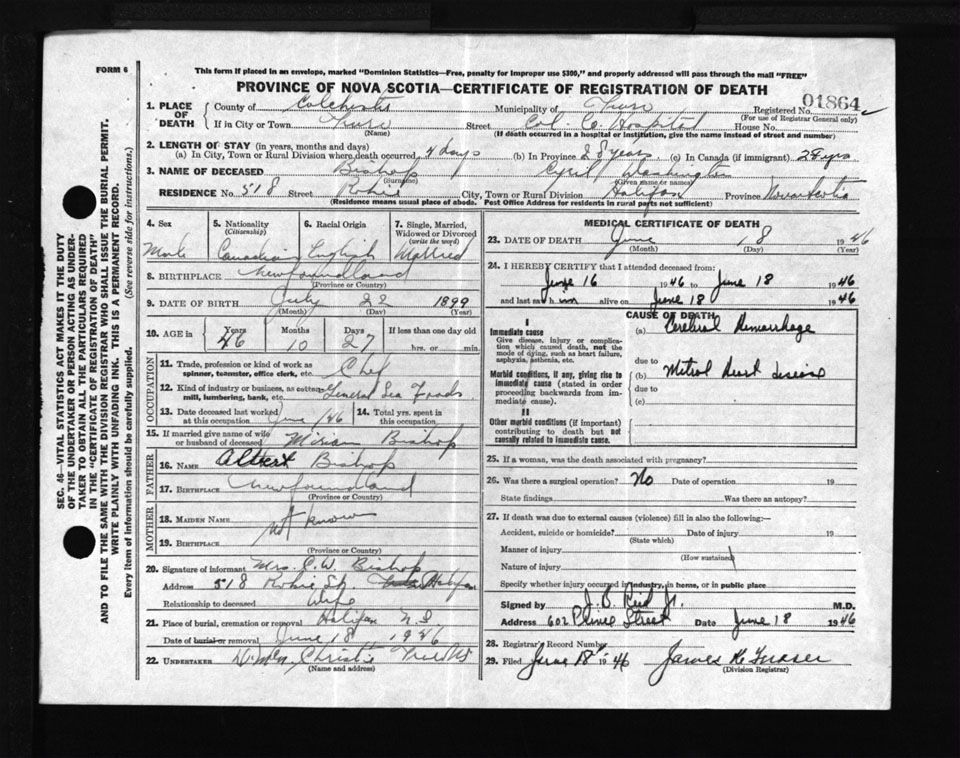 FORM 6
This form if placed in an envelope, marked "Dominion Statistics—Free, penalty for improper use $300," and properly addressed will pass through the mail "FREE"
PROVINCE OF NOVA SCOTIA—CERTIFICATE OF REGISTRATION OF DEATH
01864
1. PLACE OF DEATH
County of Colchester Municipality of Truro Registered No.
(For use of Registrar General only)
If in City or Town Truro Street Col. Co Hospital House No.
(Name) (If death occurred in a hospital or institution, give the name instead of street and number)
2. LENGTH OF STAY (in years, months and days)
(a) In City, Town or Rural Division where death occurred 4 days (b) In Province 28 years (c) In Canada (if immigrant) 28 yrs
3. NAME OF DECEASED Bishop Cyril Washington
(Surname) (Given name or names)
RESIDENCE No. 518 Street Robie City, Town or Rural Division Halifax Province Nova Scotia
(Residence means usual place of abode. Post Office Address for residents in rural parts not sufficient)
4. Sex 5. Nationality (Citizenship) 6. Racial Origin 7. Single, Married, Widowed or Divorced (write the word)
Male Canadian English Married
8. BIRTHPLACE Newfoundland
(Province or Country)
9. DATE OF BIRTH July 22 1899
(Month) (Day) (Year)
10. AGE in Years Months Days If less than one day old
46 10 27 hrs. or min.
OCCUPATION
11. Trade, profession or kind of work as spinner, teamster, office clerk, etc. Chef
12. Kind of industry or business, as cotton mill, lumbering, bank, etc. General Sea Foods
13. Date deceased last worked at this occupation June /46 14. Total yrs. spent in this occupation
15. If married give name of wife or husband of deceased Miriam Bishop
FATHER
16. NAME Albert Bishop
17. BIRTHPLACE Newfoundland
(Province or Country)
MOTHER
18. MAIDEN NAME
not know
19. BIRTHPLACE
(Province or Country)
20. Signature of informant Mrs. C.W. Bishop
Address 518 Robie St. Halifax
Relationship to deceased Wife
21. Place of burial, cremation or removal Halifax N.S
Date of burial or removal June 18 1946
22. UNDERTAKER Christie
(Name and address)
MEDICAL CERTIFICATE OF DEATH
23. DATE OF DEATH June 18 1946
(Month) (Day)
24. I HEREBY CERTIFY that I attended deceased from:
June 16 1946 to June 18 1946
and last saw him alive on June 18 1946
CAUSE OF DEATH
I
Immediate cause (a) Cerebral Hemorrhage
Give disease, injury or complication which caused death, not the mode of dying, such as heart failure, asphyxia, asthenia, etc.
due to
Morbid conditions, if any, giving rise to immediate cause (stated in order proceeding backwards from immediate cause).
(b) Mitral heart disease
due to
(c)
II
Other morbid conditions (if important) contributing to death but not causally related to immediate cause.
25. If a woman, was the death associated with pregnancy?
26. Was there a surgical operation? No Date of operation 19
State findings Was there an autopsy?
27. If death was due to external causes (violence) fill in also the following:—
Accident, suicide or homicide? Date of injury 19
(State which)
Manner of injury
(How sustained)
Nature of injury
Specify whether injury occurred in industry, in home, or in public place
Signed by J. B. Reid Jr. M.D.
Address 602 Prince Street Date June 18 1946
28. Registrar's Record Number
29. Filed June 18 1946 James K Fraser
(Division Registrar)
SEC. 46—VITAL STATISTICS ACT MAKES IT THE DUTY
OF THE UNDERTAKER OR PERSON ACTING AS UNDER-
TAKER TO OBTAIN ALL THE PARTICULARS REQUIRED
IN THE "CERTIFICATE OF REGISTRATION OF DEATH"
AND TO FILE THE SAME WITH THE DIVISION REGISTRAR WHO SHALL ISSUE THE BURIAL PERMIT.
WRITE PLAINLY WITH UNFADING INK. THIS IS A PERMANENT RECORD.
Every item of information should be carefully supplied. (See reverse side for instructions.)